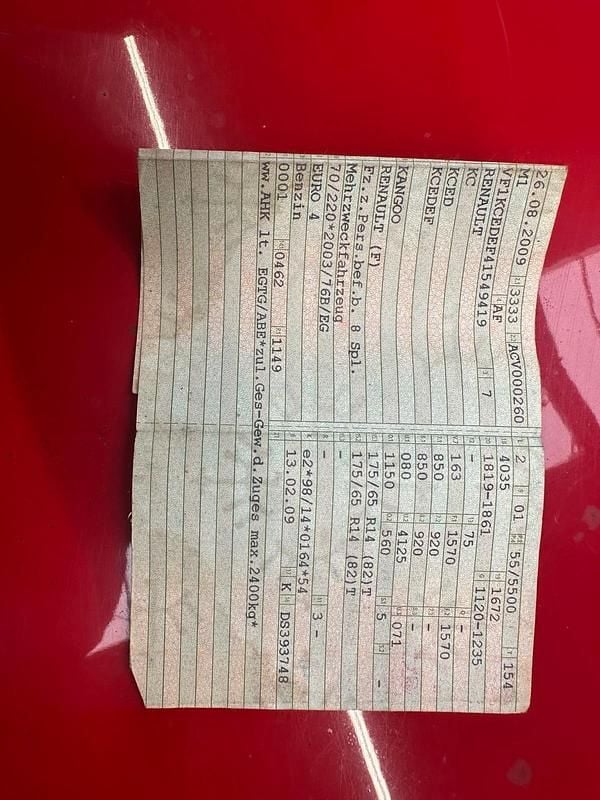 26.08.2009 3333 ACV000260
M1 AF
VF1KCEDEF41549419 7
RENAULT
KC
KCED
KCEDEF
KANGOO
RENAULT (F)
Fz.z.Pers.bef.b. 8 Spl.
Mehrzweckfahrzeug
70/220*2003/76B/EG
EURO 4
Benzin
0001 0462 1149
ww.AHK lt. EGTG/ABE*zul.Ges-Gew.d.Zuges max.2400kg*
2 01 55/5500 154
4035 1672
1819-1861 1120-1235
- -
163 75 1570 1570
850 920 -
850 920 -
080 4125 071
1150 560 5 -
175/65 R14 (82)T
175/65 R14 (82)T
-
- 3 -
e2*98/14*0164*54
13.02.09 K DS393748